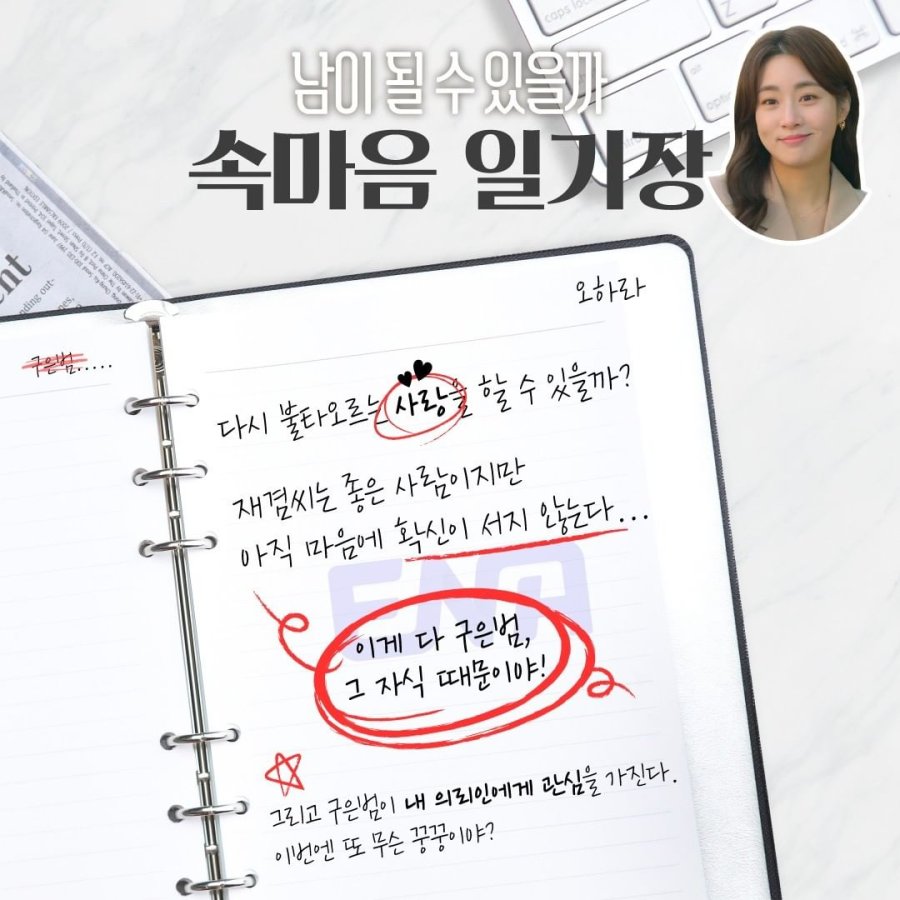 남이 될 수 있을까
속마음 일기장
오하라
구은범.....
다시 불타오르는 사랑을 할 수 있을까?
재겸씨는 좋은 사람이지만
아직 마음에 확신이 서지 않는다...
ENA
이게 다 구은범,
그 자식 때문이야!
그리고 구은범이 내 의뢰인에게 관심을 가진다.
이번엔 또 무슨 꿍꿍이야?
caps lock
option